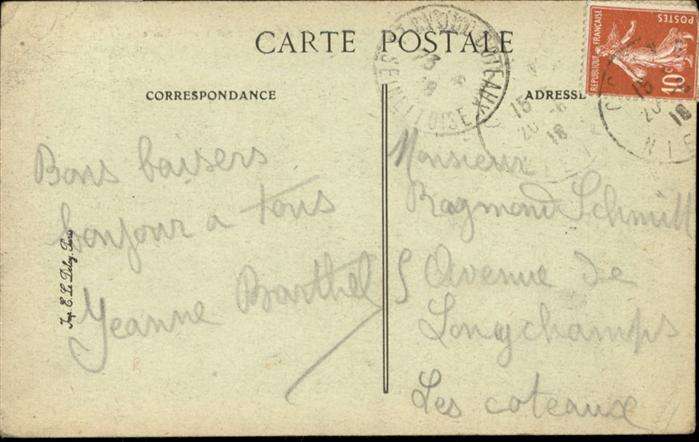 CARTE POSTALE
CORRESPONDANCE
ADRESSE
REPUBLIQUE FRANÇAISE
POSTES
10c
Bons baisers
bonjour a tous
Jeanne Barthel
Imp. E. Le Deley, Paris
Monsieur
Raymond Schmitt
5 Avenue de
Longchamps
Les coteaux
SEINE ET OISE